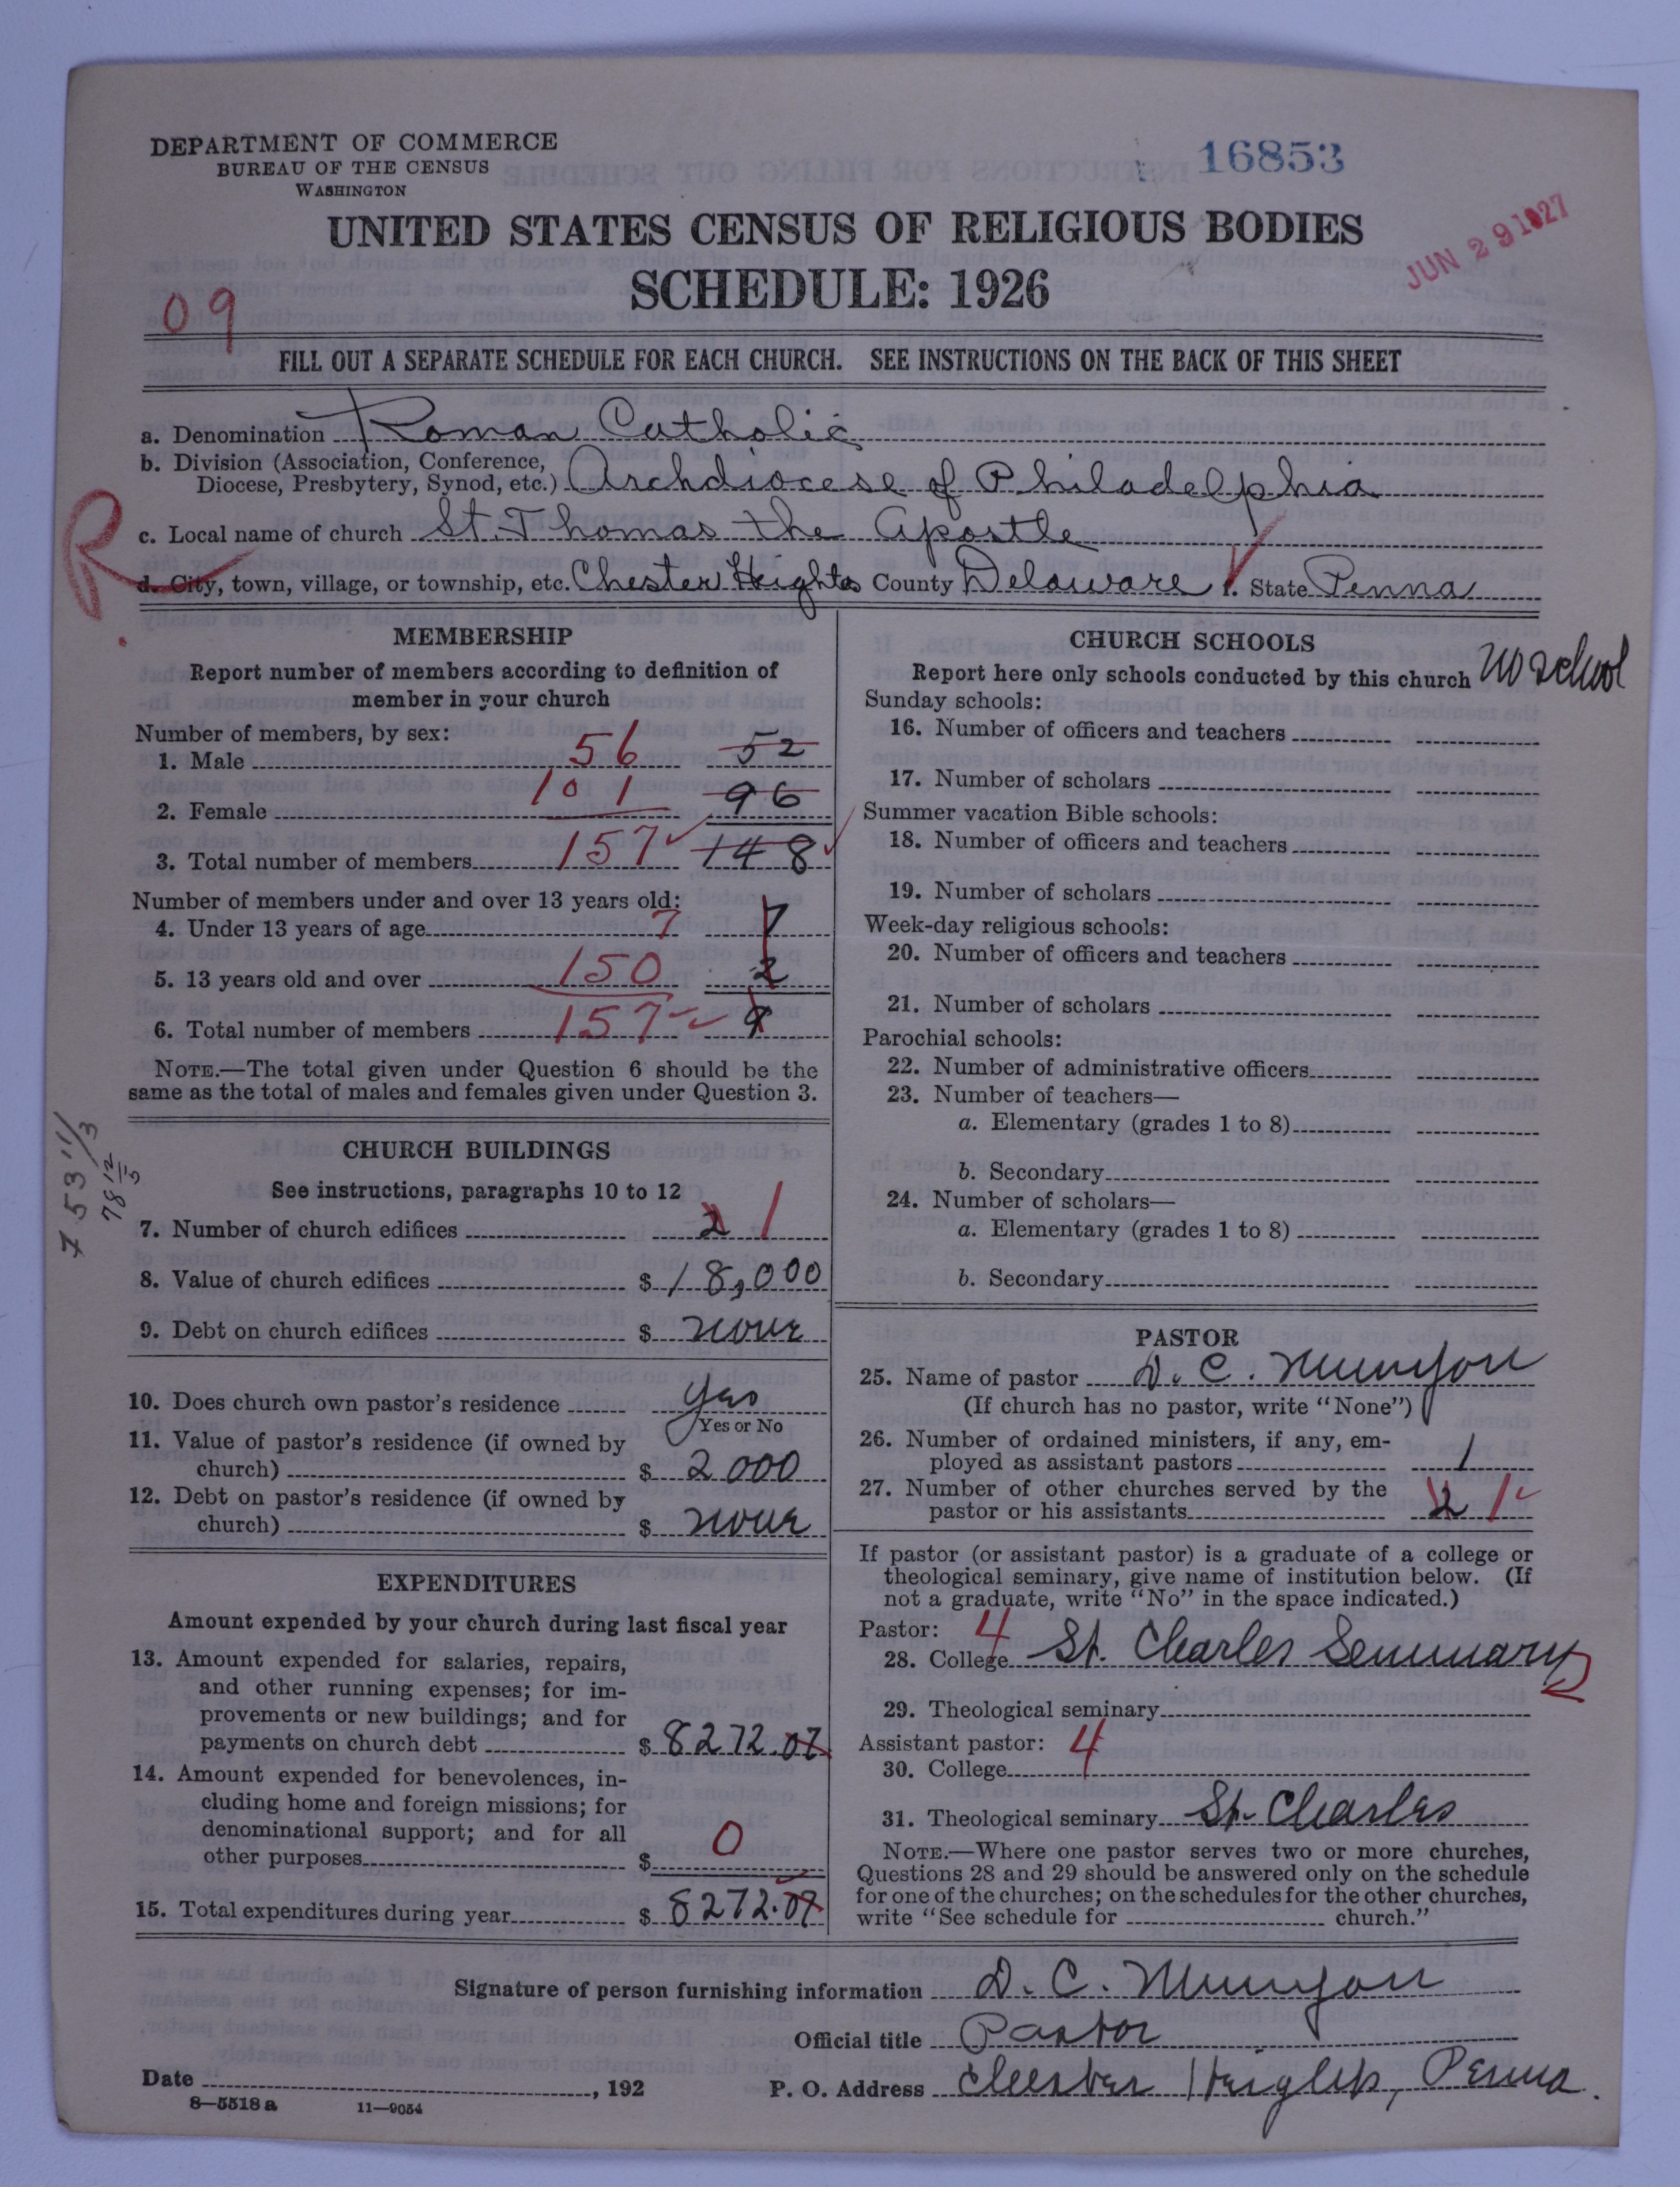 DEPARTMENT OF COMMERCE
BUREAU OF THE CENSUS
WASHINGTON
16853
JUN 29 1927
UNITED STATES CENSUS OF RELIGIOUS BODIES
SCHEDULE: 1926
09
FILL OUT A SEPARATE SCHEDULE FOR EACH CHURCH. SEE INSTRUCTIONS ON THE BACK OF THIS SHEET
a. Denomination Roman Catholic
b. Division (Association, Conference, Diocese, Presbytery, Synod, etc.) Archdiocese of Philadelphia
R
c. Local name of church St. Thomas the Apostle
d. City, town, village, or township, etc. Chester Heights County Delaware State Penna
MEMBERSHIP
Report number of members according to definition of
member in your church
Number of members, by sex:
1. Male 56 52
2. Female 101 96
3. Total number of members 157 148
Number of members under and over 13 years old:
4. Under 13 years of age 7 7
5. 13 years old and over 150 2
6. Total number of members 157 9
NOTE.—The total given under Question 6 should be the
same as the total of males and females given under Question 3.
CHURCH BUILDINGS
See instructions, paragraphs 10 to 12
7. Number of church edifices 2 1
8. Value of church edifices $ 18,000
9. Debt on church edifices $ none
10. Does church own pastor's residence yes
Yes or No
11. Value of pastor's residence (if owned by
church) $ 2000
12. Debt on pastor's residence (if owned by
church) $ none
EXPENDITURES
Amount expended by your church during last fiscal year
13. Amount expended for salaries, repairs,
and other running expenses; for im-
provements or new buildings; and for
payments on church debt $ 8272.07
14. Amount expended for benevolences, in-
cluding home and foreign missions; for
denominational support; and for all
other purposes $ 0
15. Total expenditures during year $ 8272.07
CHURCH SCHOOLS
Report here only schools conducted by this church No school
Sunday schools:
16. Number of officers and teachers
17. Number of scholars
Summer vacation Bible schools:
18. Number of officers and teachers
19. Number of scholars
Week-day religious schools:
20. Number of officers and teachers
21. Number of scholars
Parochial schools:
22. Number of administrative officers
23. Number of teachers—
a. Elementary (grades 1 to 8)
b. Secondary
24. Number of scholars—
a. Elementary (grades 1 to 8)
b. Secondary
PASTOR
25. Name of pastor D. C. Munyon
(If church has no pastor, write "None")
26. Number of ordained ministers, if any, em-
ployed as assistant pastors 1
27. Number of other churches served by the
pastor or his assistants 2 1
If pastor (or assistant pastor) is a graduate of a college or
theological seminary, give name of institution below. (If
not a graduate, write "No" in the space indicated.)
Pastor: 4
28. College St. Charles Seminary
29. Theological seminary
Assistant pastor: 4
30. College
31. Theological seminary St. Charles
NOTE.—Where one pastor serves two or more churches,
Questions 28 and 29 should be answered only on the schedule
for one of the churches; on the schedules for the other churches,
write "See schedule for church."
Signature of person furnishing information D. C. Munyon
Official title Pastor
Date , 192
P. O. Address Chester Heights, Penna.
8—5518a 11—9054